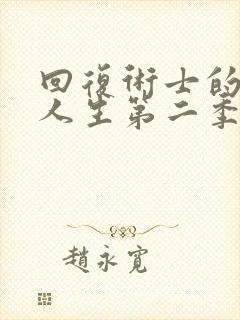 回復術士的
人生第二季
趙永寬